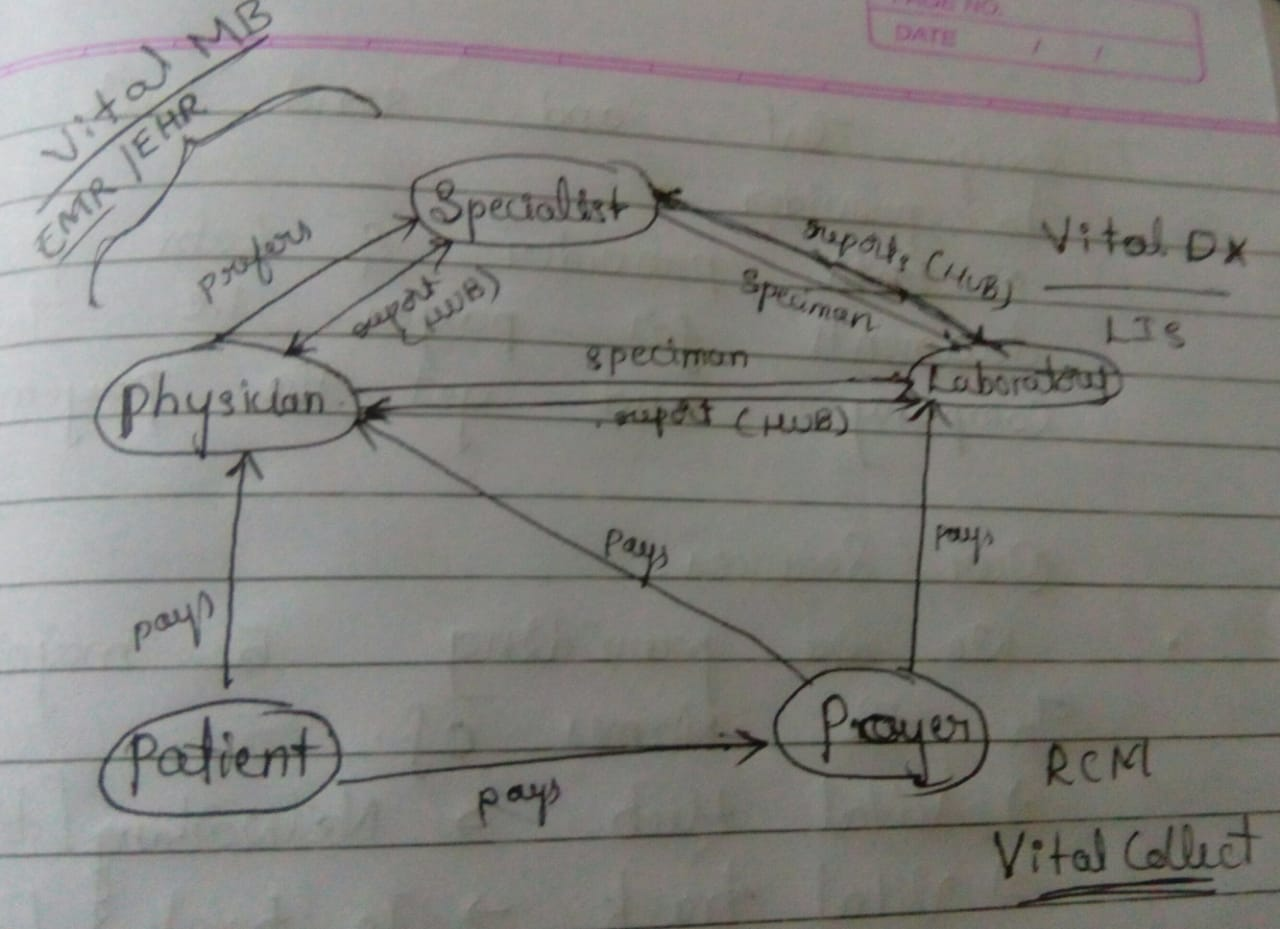 PAGE NO.
DATE / /
Vital MB
EMR/EHR
Specialist
prefers
report (HUB)
report (HUB)
Speciman
Vital DX
LIS
speciman
Physician
Laboratory
report (HUB)
pays
pays
pays
Patient
Prayer
pays
RCM
Vital Collect